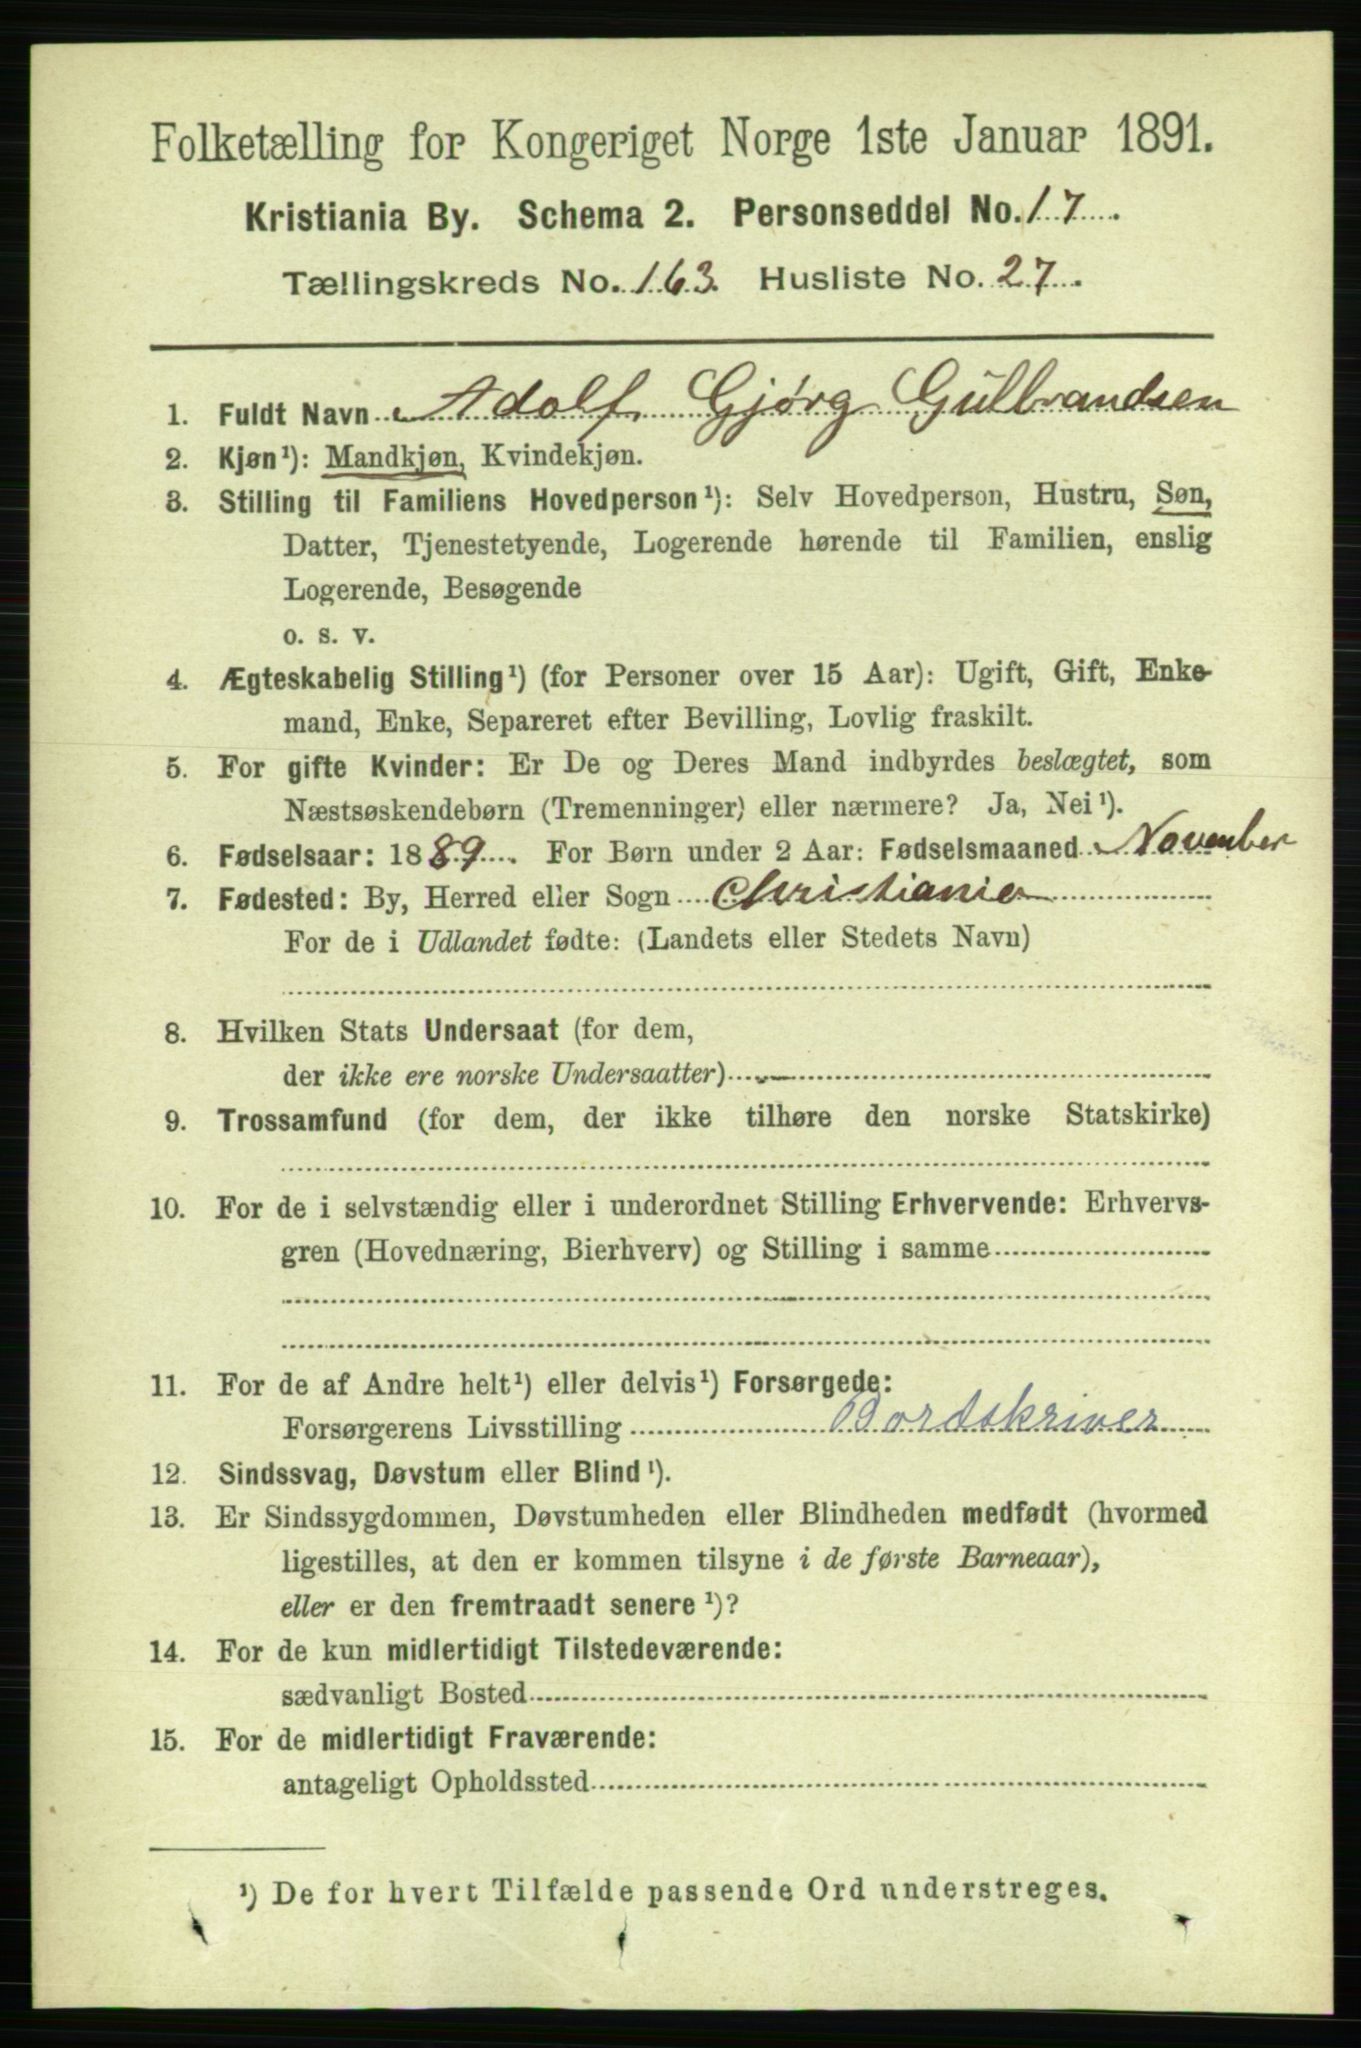 Folketælling for Kongeriget Norge 1ste Januar 1891.
Kristiania By. Schema 2. Personseddel No. 17.
Tællingskreds No. 163. Husliste No. 27.
1. Fuldt Navn Adolf Gjørg Gulbrandsen
2. Kjøn¹): Mandkjøn, Kvindekjøn.
3. Stilling til Familiens Hovedperson¹): Selv Hovedperson, Hustru, Søn,
Datter, Tjenestetyende, Logerende hørende til Familien, enslig
Logerende, Besøgende
o. s. v.
4. Ægteskabelig Stilling¹) (for Personer over 15 Aar): Ugift, Gift, Enke-
mand, Enke, Separeret efter Bevilling, Lovlig fraskilt.
5. For gifte Kvinder: Er De og Deres Mand indbyrdes beslægtet, som
Næstsøskendebørn (Tremenninger) eller nærmere? Ja, Nei¹).
6. Fødselsaar: 1889. For Børn under 2 Aar: Fødselsmaaned November
7. Fødested: By, Herred eller Sogn Christiania
For de i Udlandet fødte: (Landets eller Stedets Navn)
8. Hvilken Stats Undersaat (for dem,
der ikke ere norske Undersaatter)
9. Trossamfund (for dem, der ikke tilhøre den norske Statskirke)
10. For de i selvstændig eller i underordnet Stilling Erhvervende: Erhvervs-
gren (Hovednæring, Bierhverv) og Stilling i samme
11. For de af Andre helt¹) eller delvis¹) Forsørgede:
Forsørgerens Livsstilling Bordskriver
12. Sindssvag, Døvstum eller Blind¹).
13. Er Sindssygdommen, Døvstumheden eller Blindheden medfødt (hvormed
ligestilles, at den er kommen tilsyne i de første Barneaar),
eller er den fremtraadt senere¹)?
14. For de kun midlertidigt Tilstedeværende:
sædvanligt Bosted
15. For de midlertidigt Fraværende:
antageligt Opholdssted
¹) De for hvert Tilfælde passende Ord understreges.